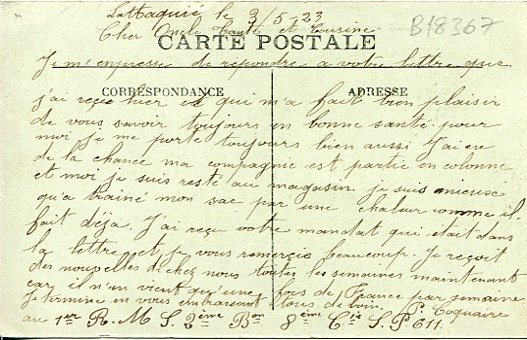 Lattaquié le 3/5/23
B18367
Cher Oncle Tante et Cousine
CARTE POSTALE
Je m'empresse de répondre a votre lettre que
CORRESPONDANCE
ADRESSE
j'ai reçu hier et qui m'a fait bien plaisir
de vous savoir toujours en bonne santé pour
moi je me porte toujours bien aussi j'ai eu
de la chance ma compagnie est partie en colonne
et moi je suis resté au magasin je suis
qu'a trainé mon sac par une chaleur comme il
fait déja. J'ai reçu votre mandat qui était dans
la lettre et je vous remercie beaucoup. Je reçoit
des nouvelles de chez nous toutes les semaines maintenant
car il n'en vient qu'une fois de France par semaine
je termine en vous embrassant tous de loin.
P. Coquaire
au 1er R. M. S. 2ème Bon 8ème Cie S. P 611.